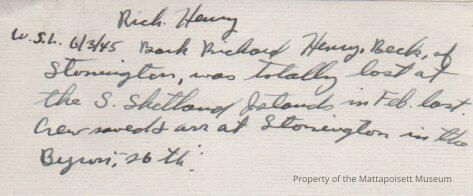 Rich. Henry
W.S.L. 6/3/45 Bark Richard Henry, Beck, of
Stonington, was totally lost at
the S. Shetland Islands in Feb. last.
Crew saved & arr at Stonington in the
Byron, 26th.
Property of the Mattapoisett Museum